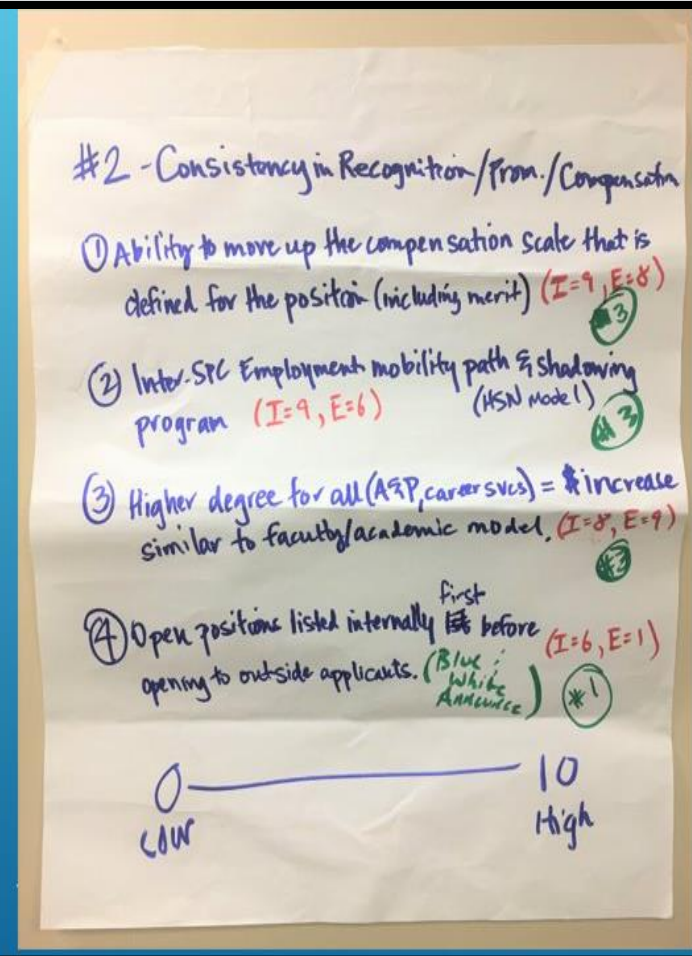 #2 - Consistency in Recognition/Prom./Compensatn
① Ability to move up the compensation scale that is
defined for the position (including merit) (I=9, E=8)
3
② Inter-SPC Employment mobility path & shadowing
program (I=9, E=6) (HSN Model)
#3
③ Higher degree for all (A&P, career svcs) = $ increase
similar to faculty/academic model. (I=8, E=9)
#3
first
④ Open positions listed internally before (I=6, E=1)
opening to outside applicants. (Blue &
White
Announce)
*1
0 10
LOW High